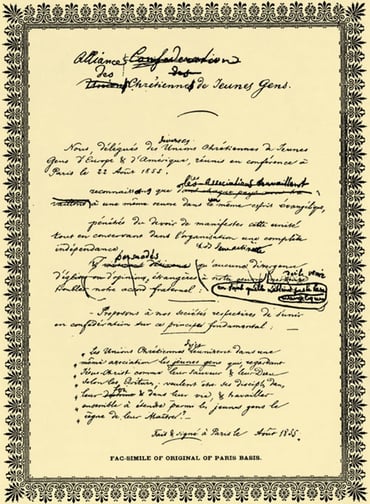 Alliance Confédération
des des
Unions Chrétiennes de Jeunes Gens.
diverses
Nous, délégués de Unions Chrétiennes de Jeunes
Gens d'Europe & d'Amérique, réunis en conférence à
Paris le 22 Août 1855.
reconnaissant que les Associations travaillent
à une même œuvre dans le même esprit évangélique,
pénétrés du devoir de manifester cette unité
tout en conservant dans l'organisation une complète
indépendance,
persuadés
qu'aucune divergence
d'opinion étrangère à notre
notre accord fraternel
Proposons à nos sociétés respectives de s'unir
en confédération sur ce principe fondamental :
Les Unions Chrétiennes réunissent dans une
même association les jeunes gens qui regardant
Jésus-Christ comme leur Sauveur & leur Dieu
selon les Ecritures, veulent être ses disciples dans
leur foi & dans leur vie & travailler
ensemble à étendre parmi les jeunes gens le
règne de leur Maître.
Fait & signé à Paris le Août 1855.
FAC-SIMILE OF ORIGINAL OF PARIS BASIS.